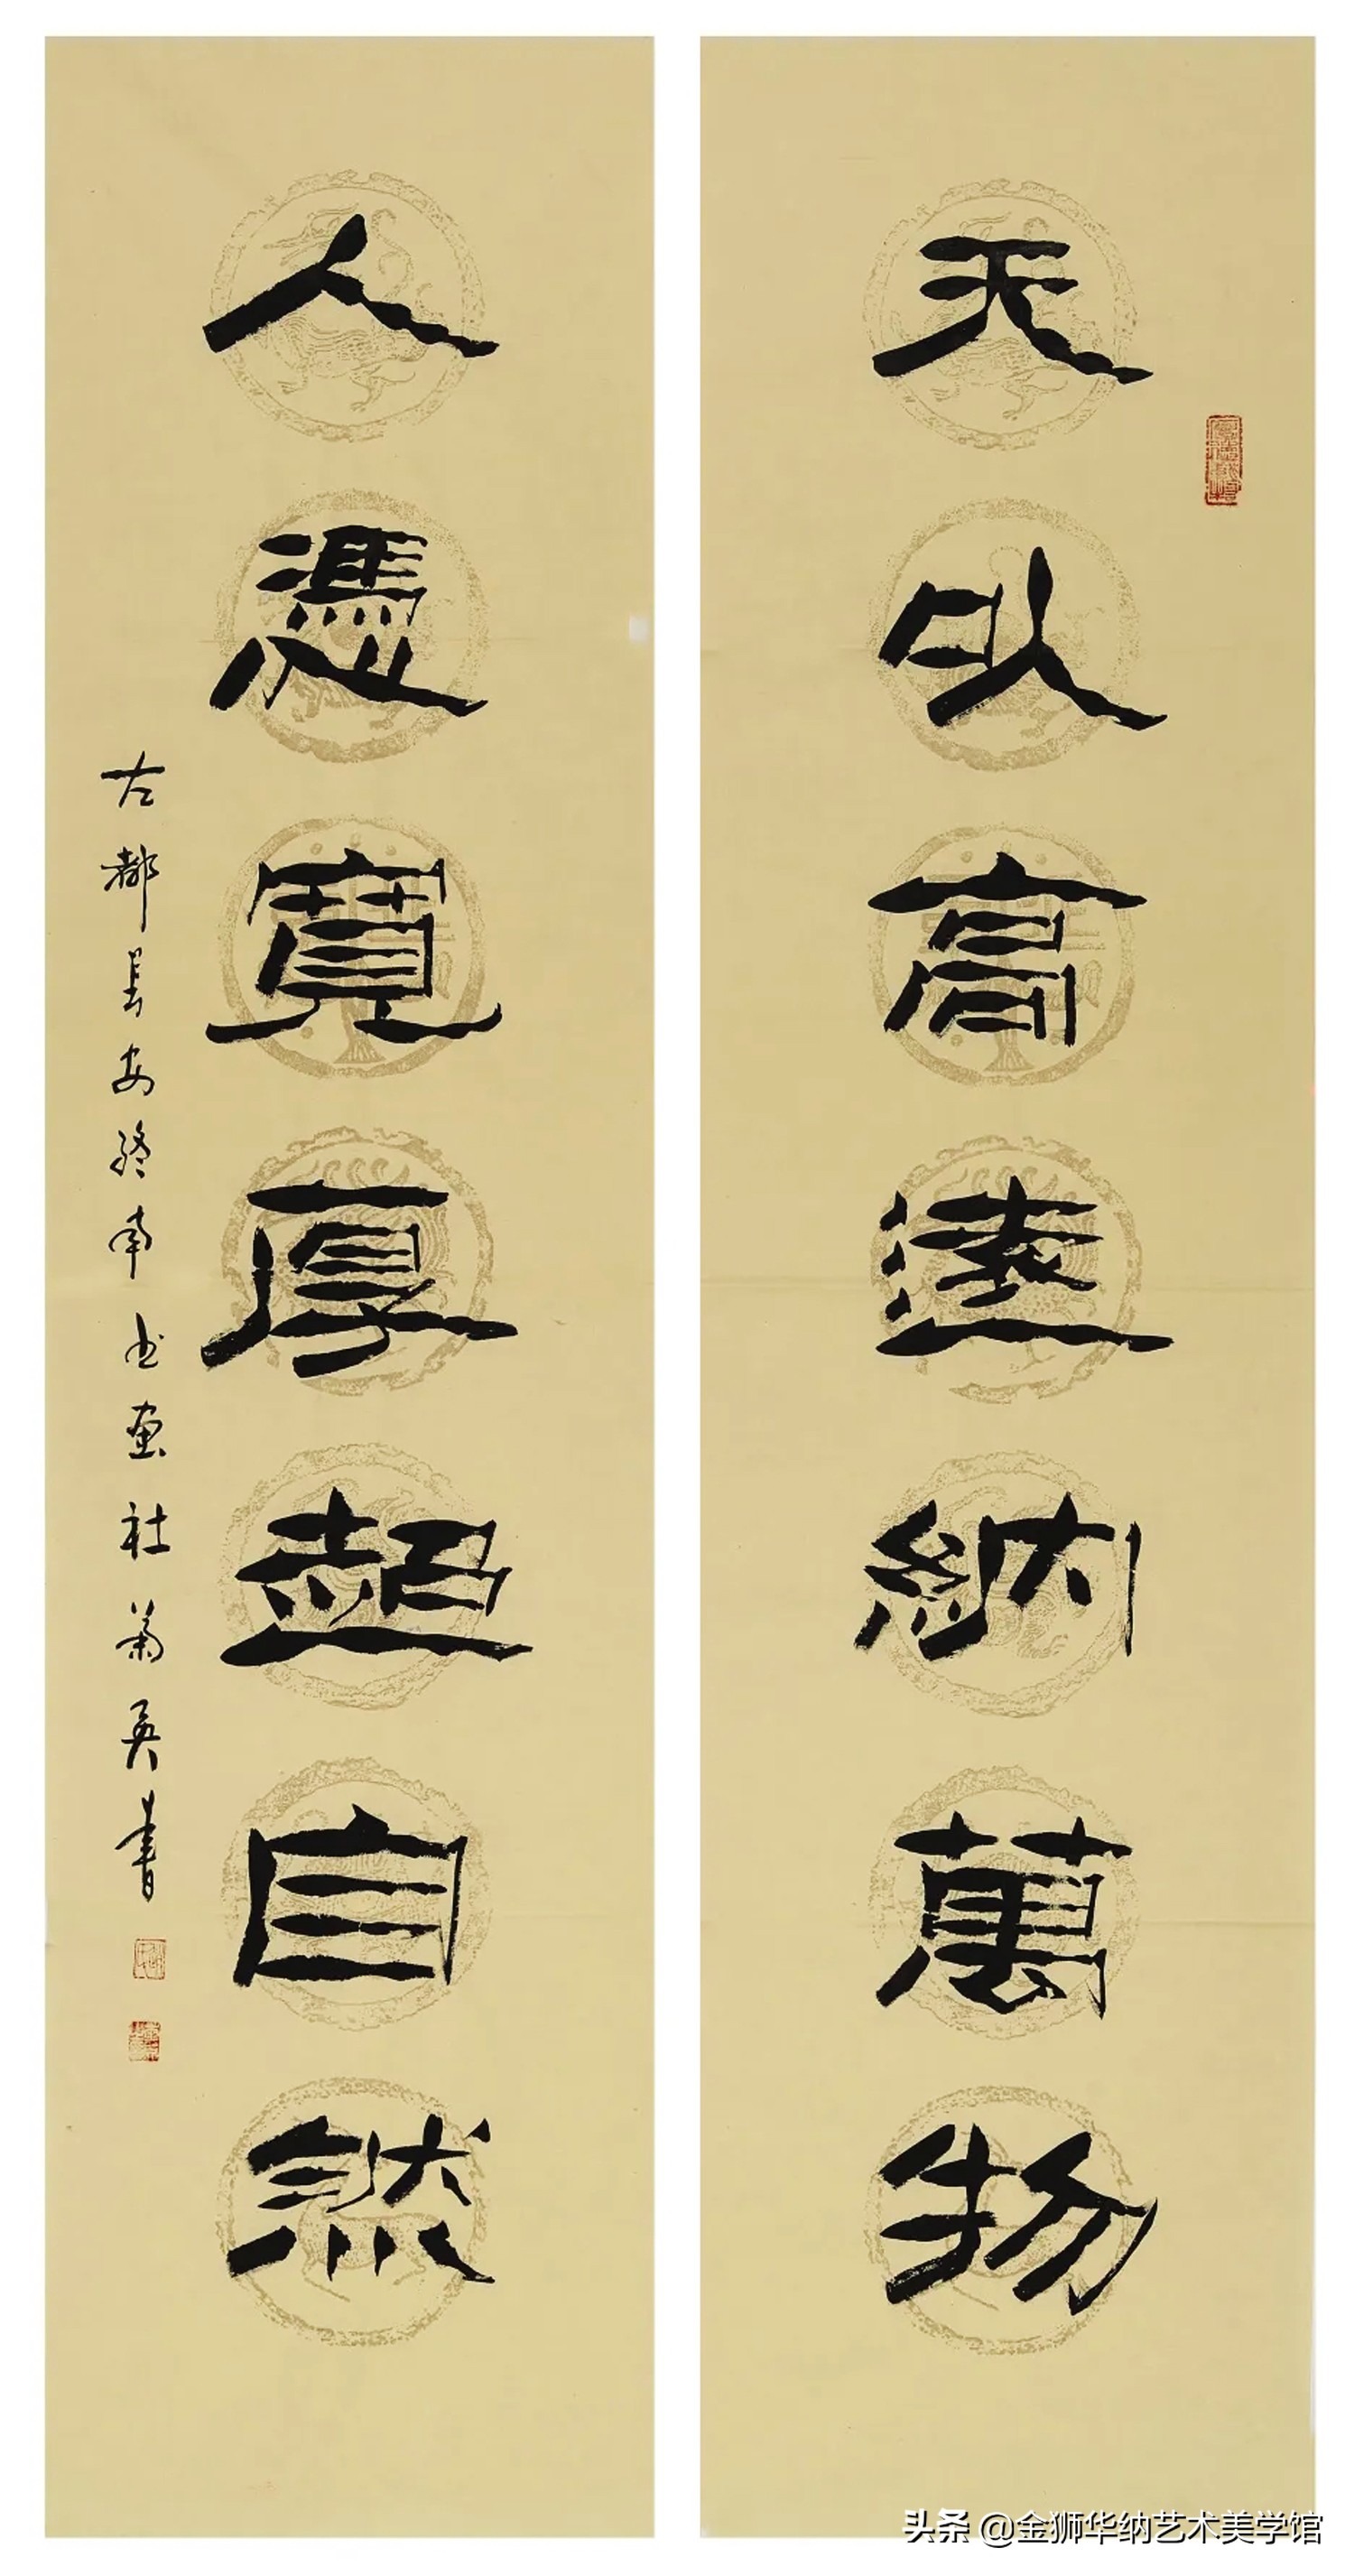 天以高遠納萬物
人憑寬厚超自然
古都長安終南书画社菊英書
头条 @金狮华纳艺术美学馆